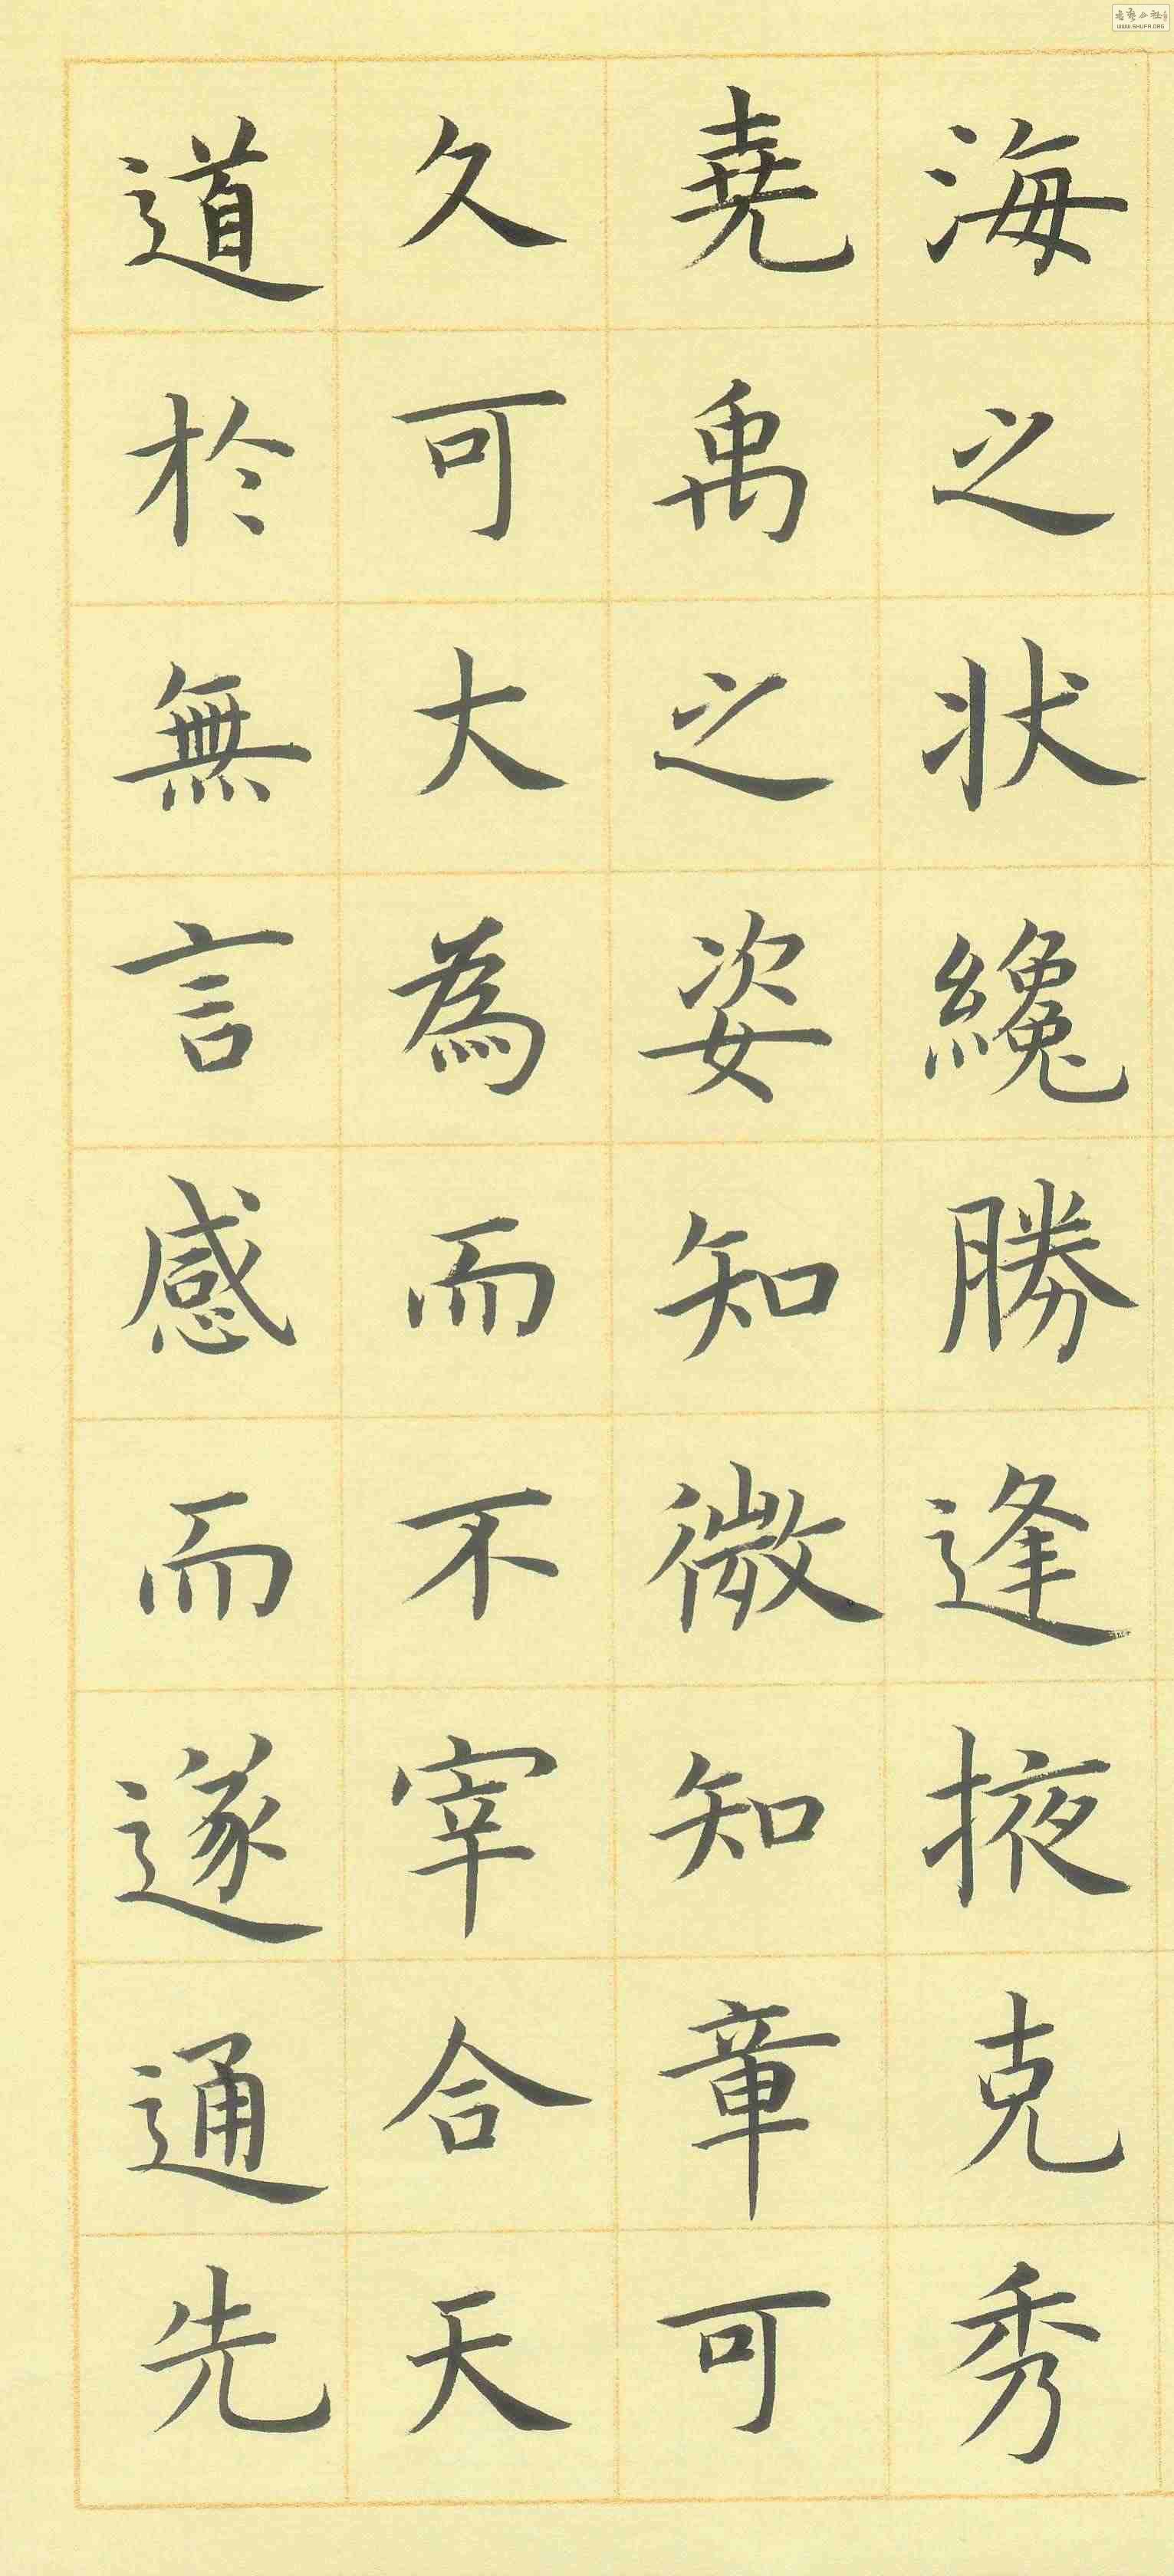 海之状纔勝逢掖克秀
堯禹之姿知微知章可
久可大為而不宰合天
道於無言感而遂通先
WWW.SHUFA.ORG